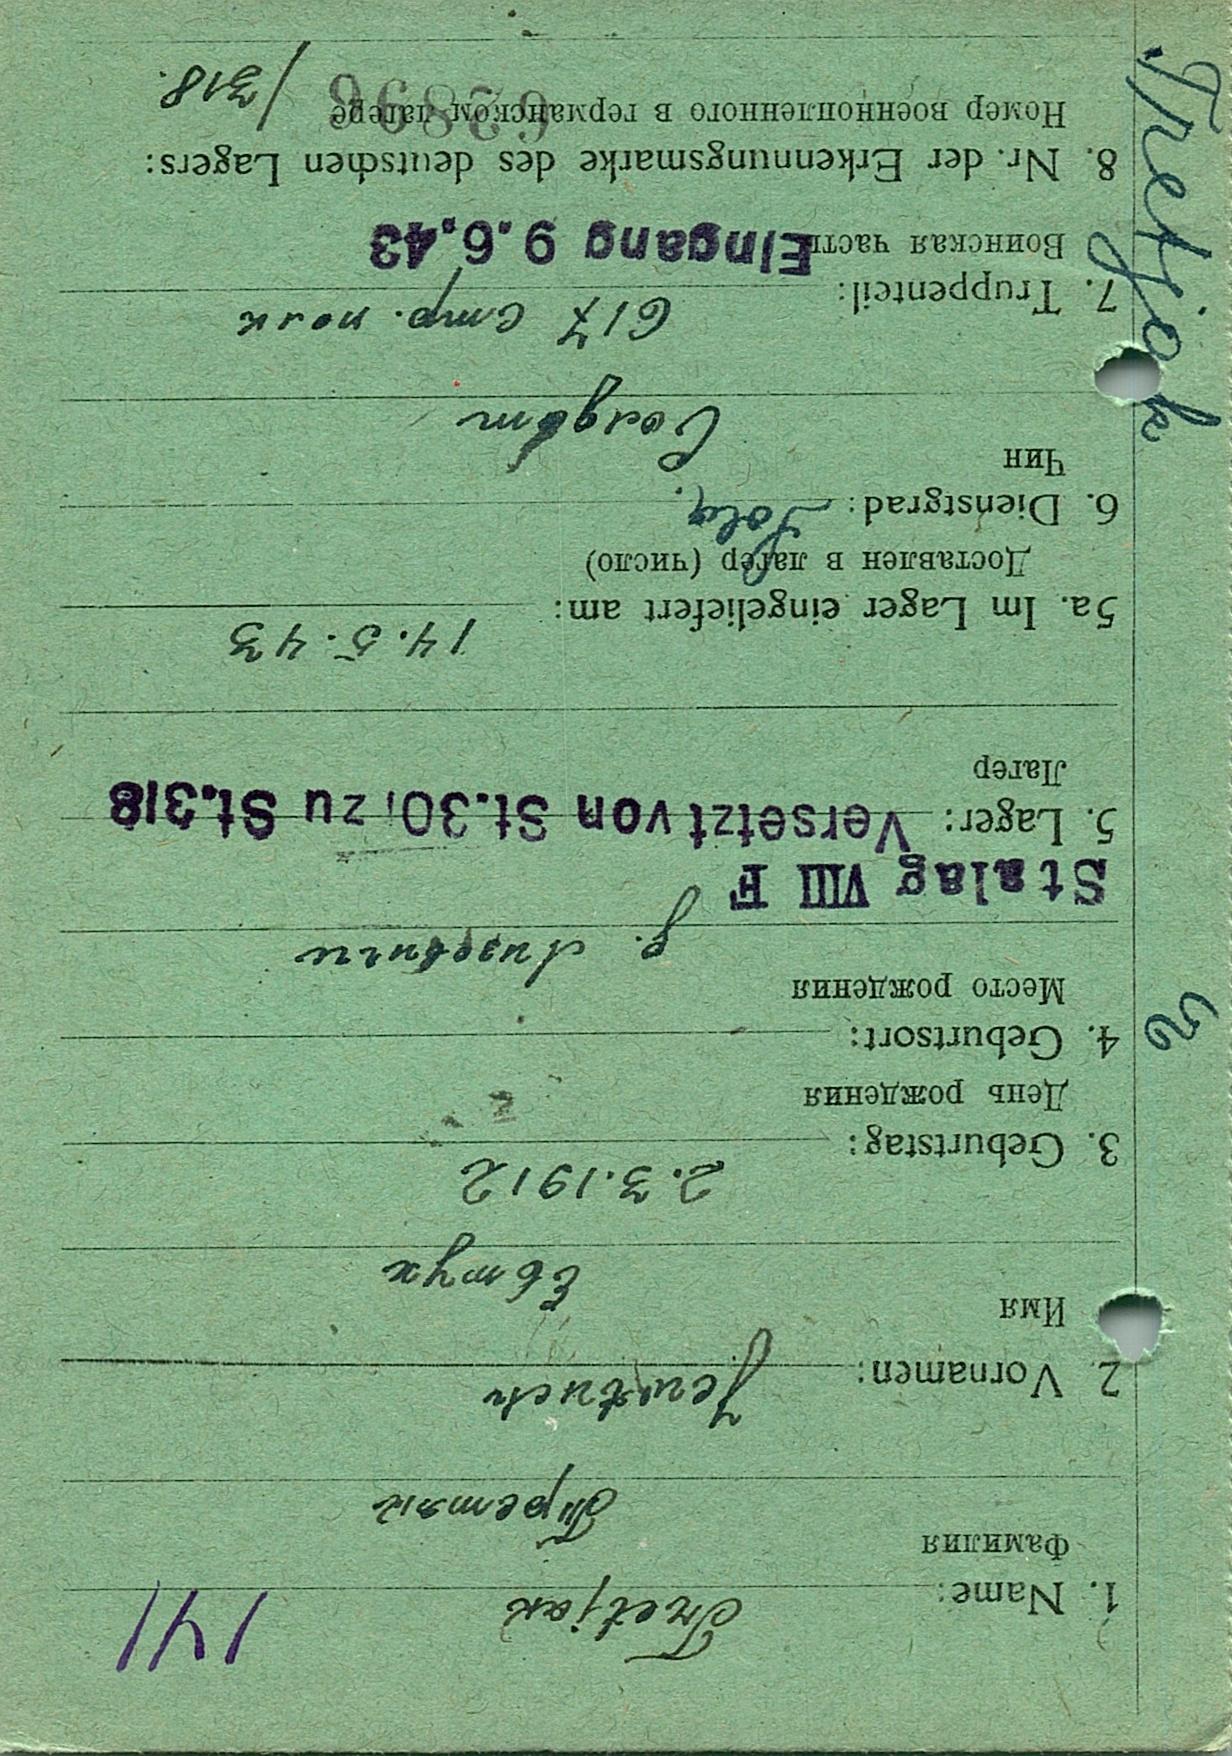 141
1. Name: Tretjak
Фамилия Третяк
2. Vornamen: Jewtuch
Имя Евтух
3. Geburtstag: 2.3.1912
День рождения
4. Geburtsort:
Место рождения д.
Stalag VIII F
5. Lager: Versetzt von St. 30, zu St. 318
Лагер
5a. Im Lager eingeliefert am: 14.5.43
Доставлен в лагер (число)
6. Dienstgrad: Sold.
Чин Солдат
7. Truppenteil: 617 стр. полк
Воинская часть Eingang 9.6.43
8. Nr. der Erkennungsmarke des deutschen Lagers:
Номер военнопленного в германском лагере 62896 /318.
Tretjak